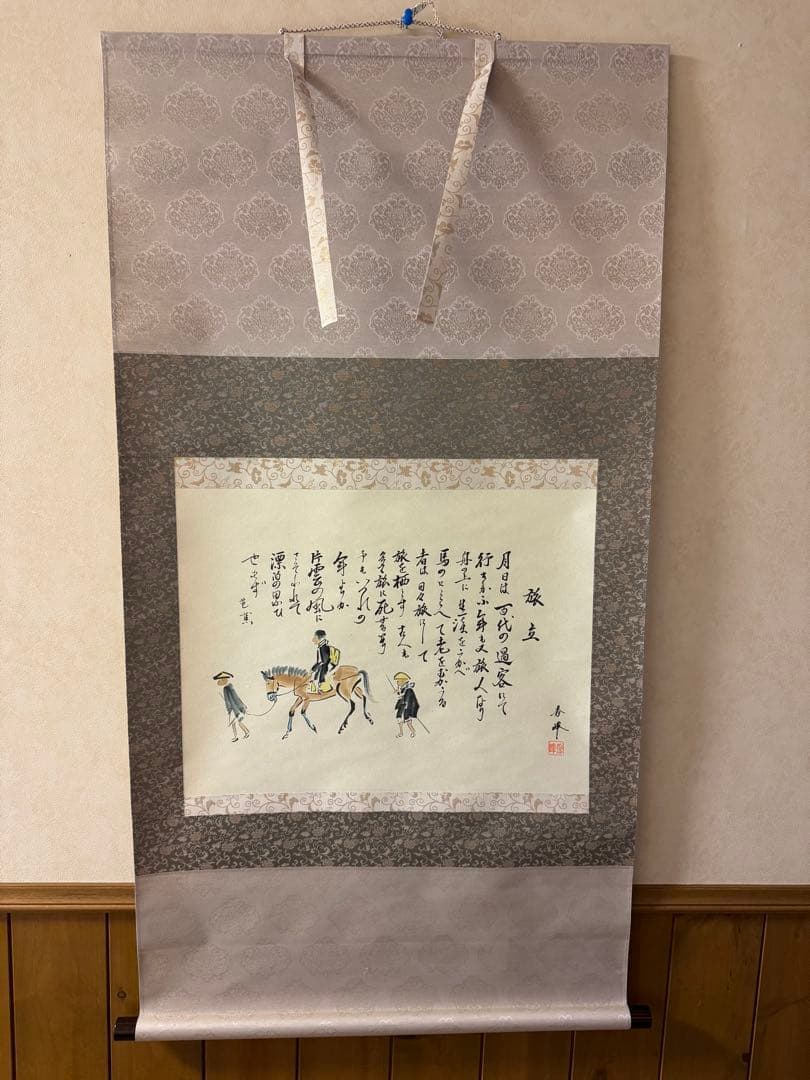 旅立
月日は百代の過客にして
行かふ年も又旅人なり
舟の上に生涯をうかべ
馬の口とらへて老をむかふる
者は日々旅にして
旅を栖とす古人も
多く旅に死するあり
予もいづれの
年よりか
片雲の風に
さそはれて
漂泊の思ひ
やまず 芭蕉